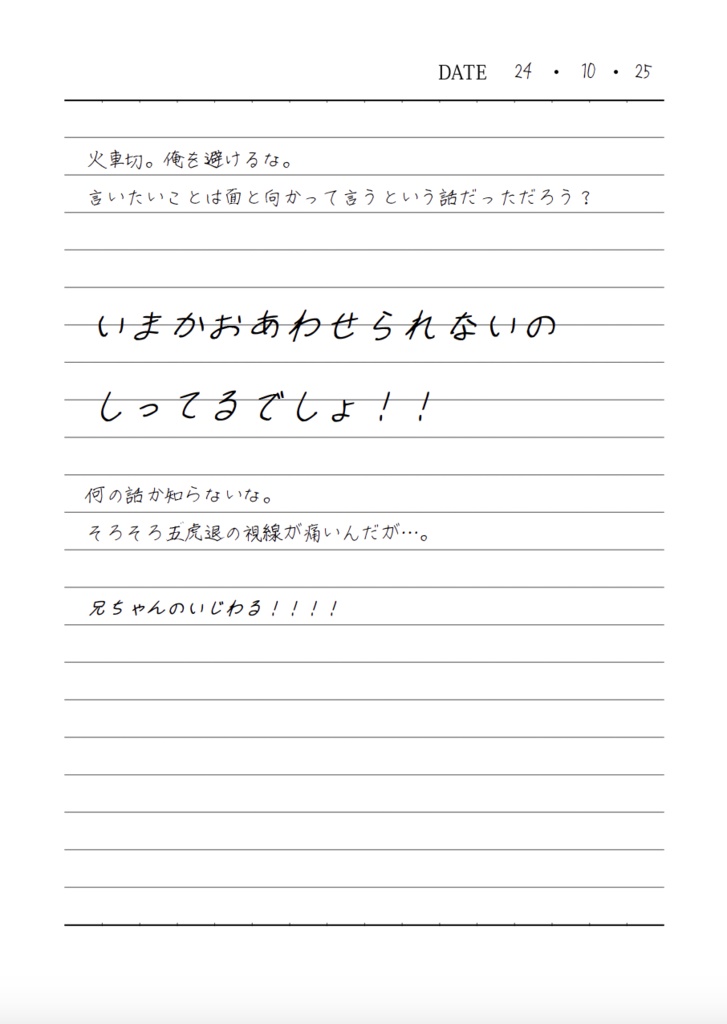 DATE 24・10・25
火車切。俺を避けるな。
言いたいことは面と向かって言うという話だっただろう？
いまかおあわせられないの
しってるでしょ！！
何の話か知らないな。
そろそろ五虎退の視線が痛いんだが…。
兄ちゃんのいじわる！！！！